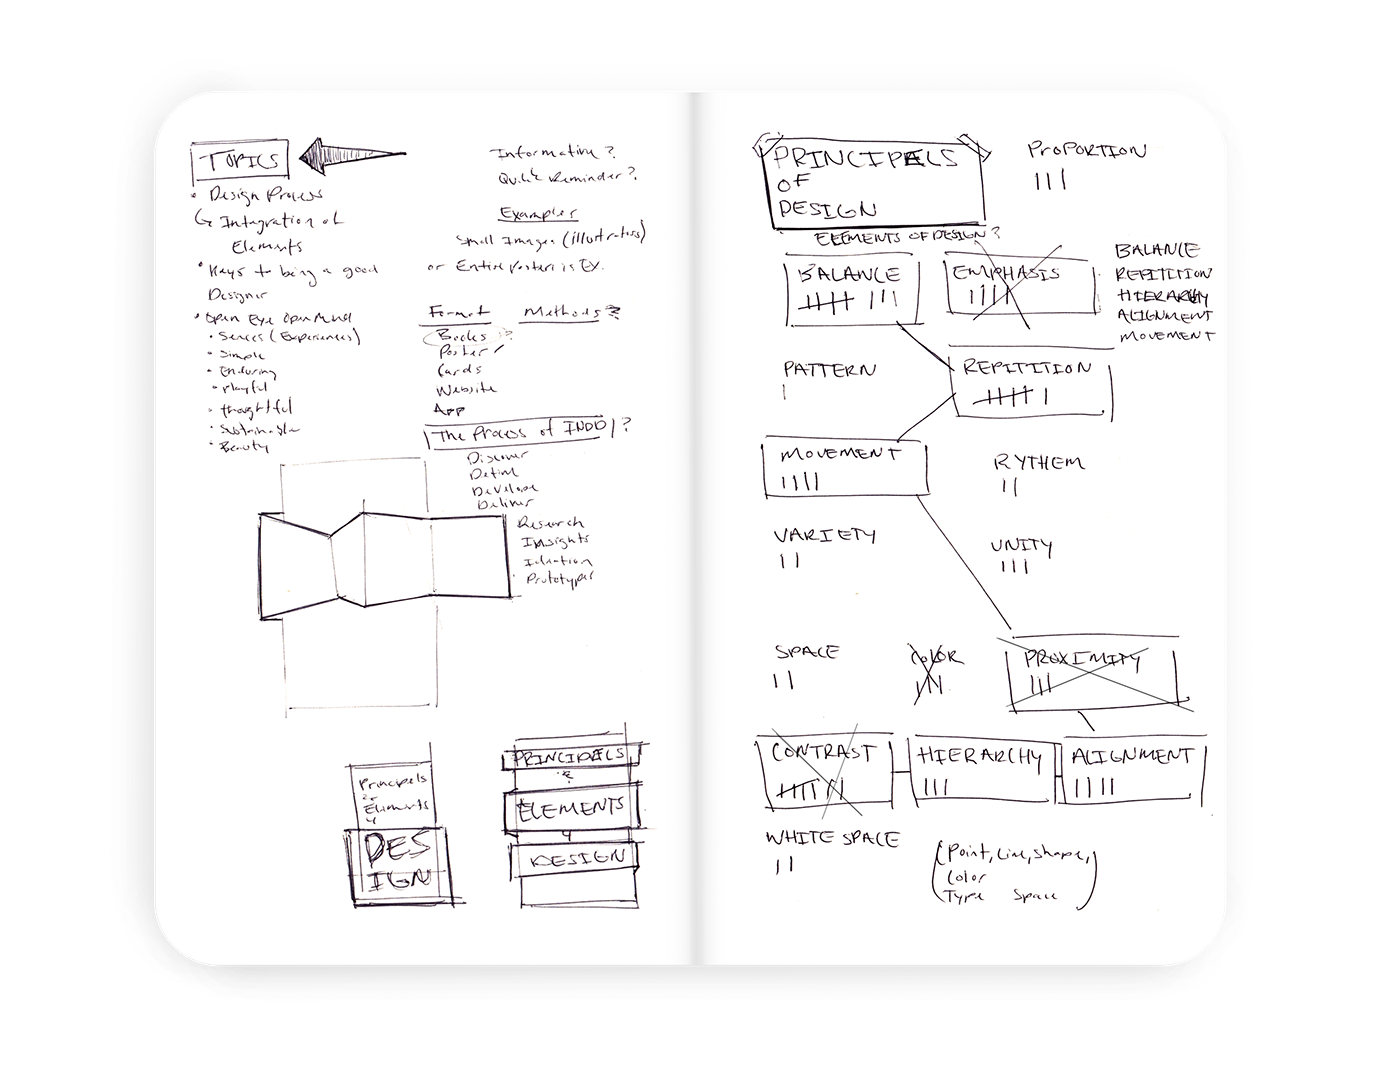 TOPICS
• Design Process
↳ Integration of
Elements
• Keys to being a good
Designer
• Open Eye Open Mind
• Senses (Experiences)
• Simple
• Enduring
• Playful
• thoughtful
• Sustainable
• Beauty
Information?
Quick Reminder?
Examples
Small Images (illustrations)
or Entire Poster is Ex.
Format
Books ?
Poster ✓
Cards
Website
App
Methods?
The Process of INDD ?
Discover
Define
Develope
Deliver
Research
Insights
Ideation
Prototypes
Principels
Elements
DES
IGN
PRINCIPELS
&
ELEMENTS
DESIGN
PRINCIPELS
OF
DESIGN
ELEMENTS OF DESIGN?
PROPORTION
BALANCE
EMPHASIS
BALANCE
REPITITION
HIERARCHY
ALIGNMENT
MOVEMENT
PATTERN
REPITITION
MOVEMENT
RYTHEM
VARIETY
UNITY
SPACE
COLOR
PROXIMITY
CONTRAST
HIERARCHY
ALIGNMENT
WHITE SPACE
(Point, Line, Shape,
Color
Type Space)